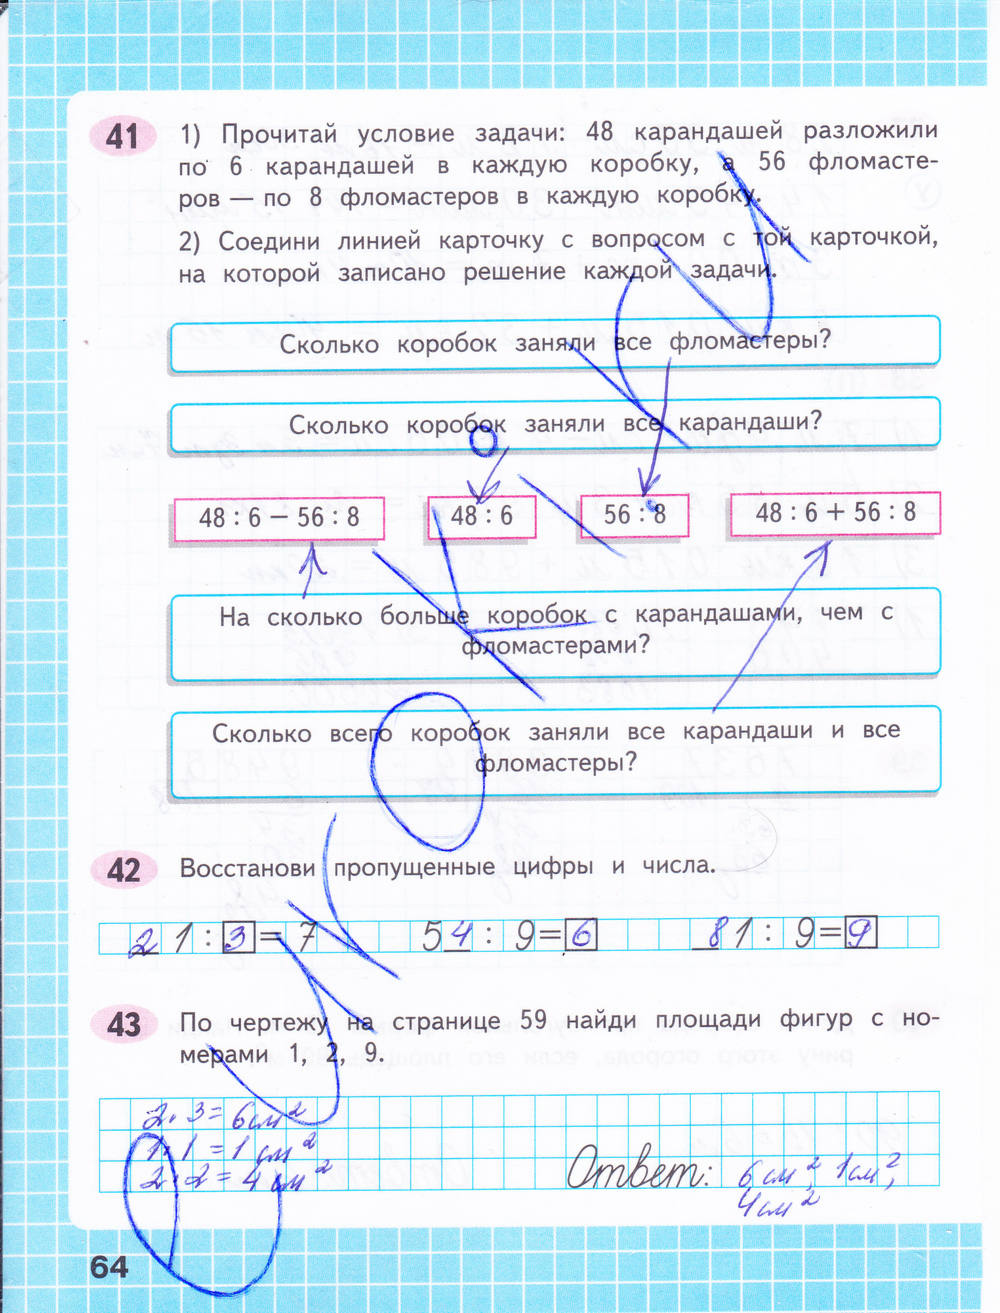 41 1) Прочитай условие задачи: 48 карандашей разложили
по 6 карандашей в каждую коробку, а 56 фломасте-
ров — по 8 фломастеров в каждую коробку.
2) Соедини линией карточку с вопросом с той карточкой,
на которой записано решение каждой задачи.
Сколько коробок заняли все фломастеры?
Сколько коробок заняли все карандаши?
48 : 6 − 56 : 8 48 : 6 56 : 8 48 : 6 + 56 : 8
На сколько больше коробок с карандашами, чем с
фломастерами?
Сколько всего коробок заняли все карандаши и все
фломастеры?
42 Восстанови пропущенные цифры и числа.
21 : 3 = 7 54 : 9 = 6 81 : 9 = 9
43 По чертежу на странице 59 найди площади фигур с но-
мерами 1, 2, 9.
2 · 3 = 6 см²
1 · 1 = 1 см²
2 · 2 = 4 см² Ответ: 6 см², 1 см²,
4 см²
64